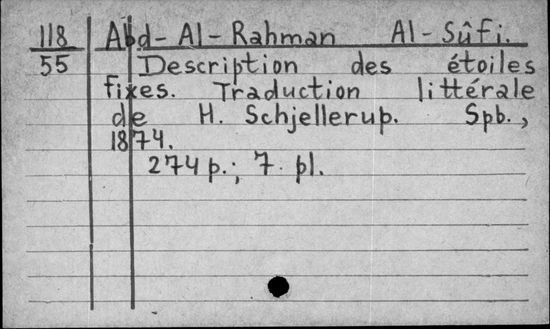 118 Abd-Al-Rahman Al-Sûfi.
55 Description des étoiles
fixes. Traduction littérale
de H. Schjellerup. Spb.,
1874.
274 p.; 7 pl.